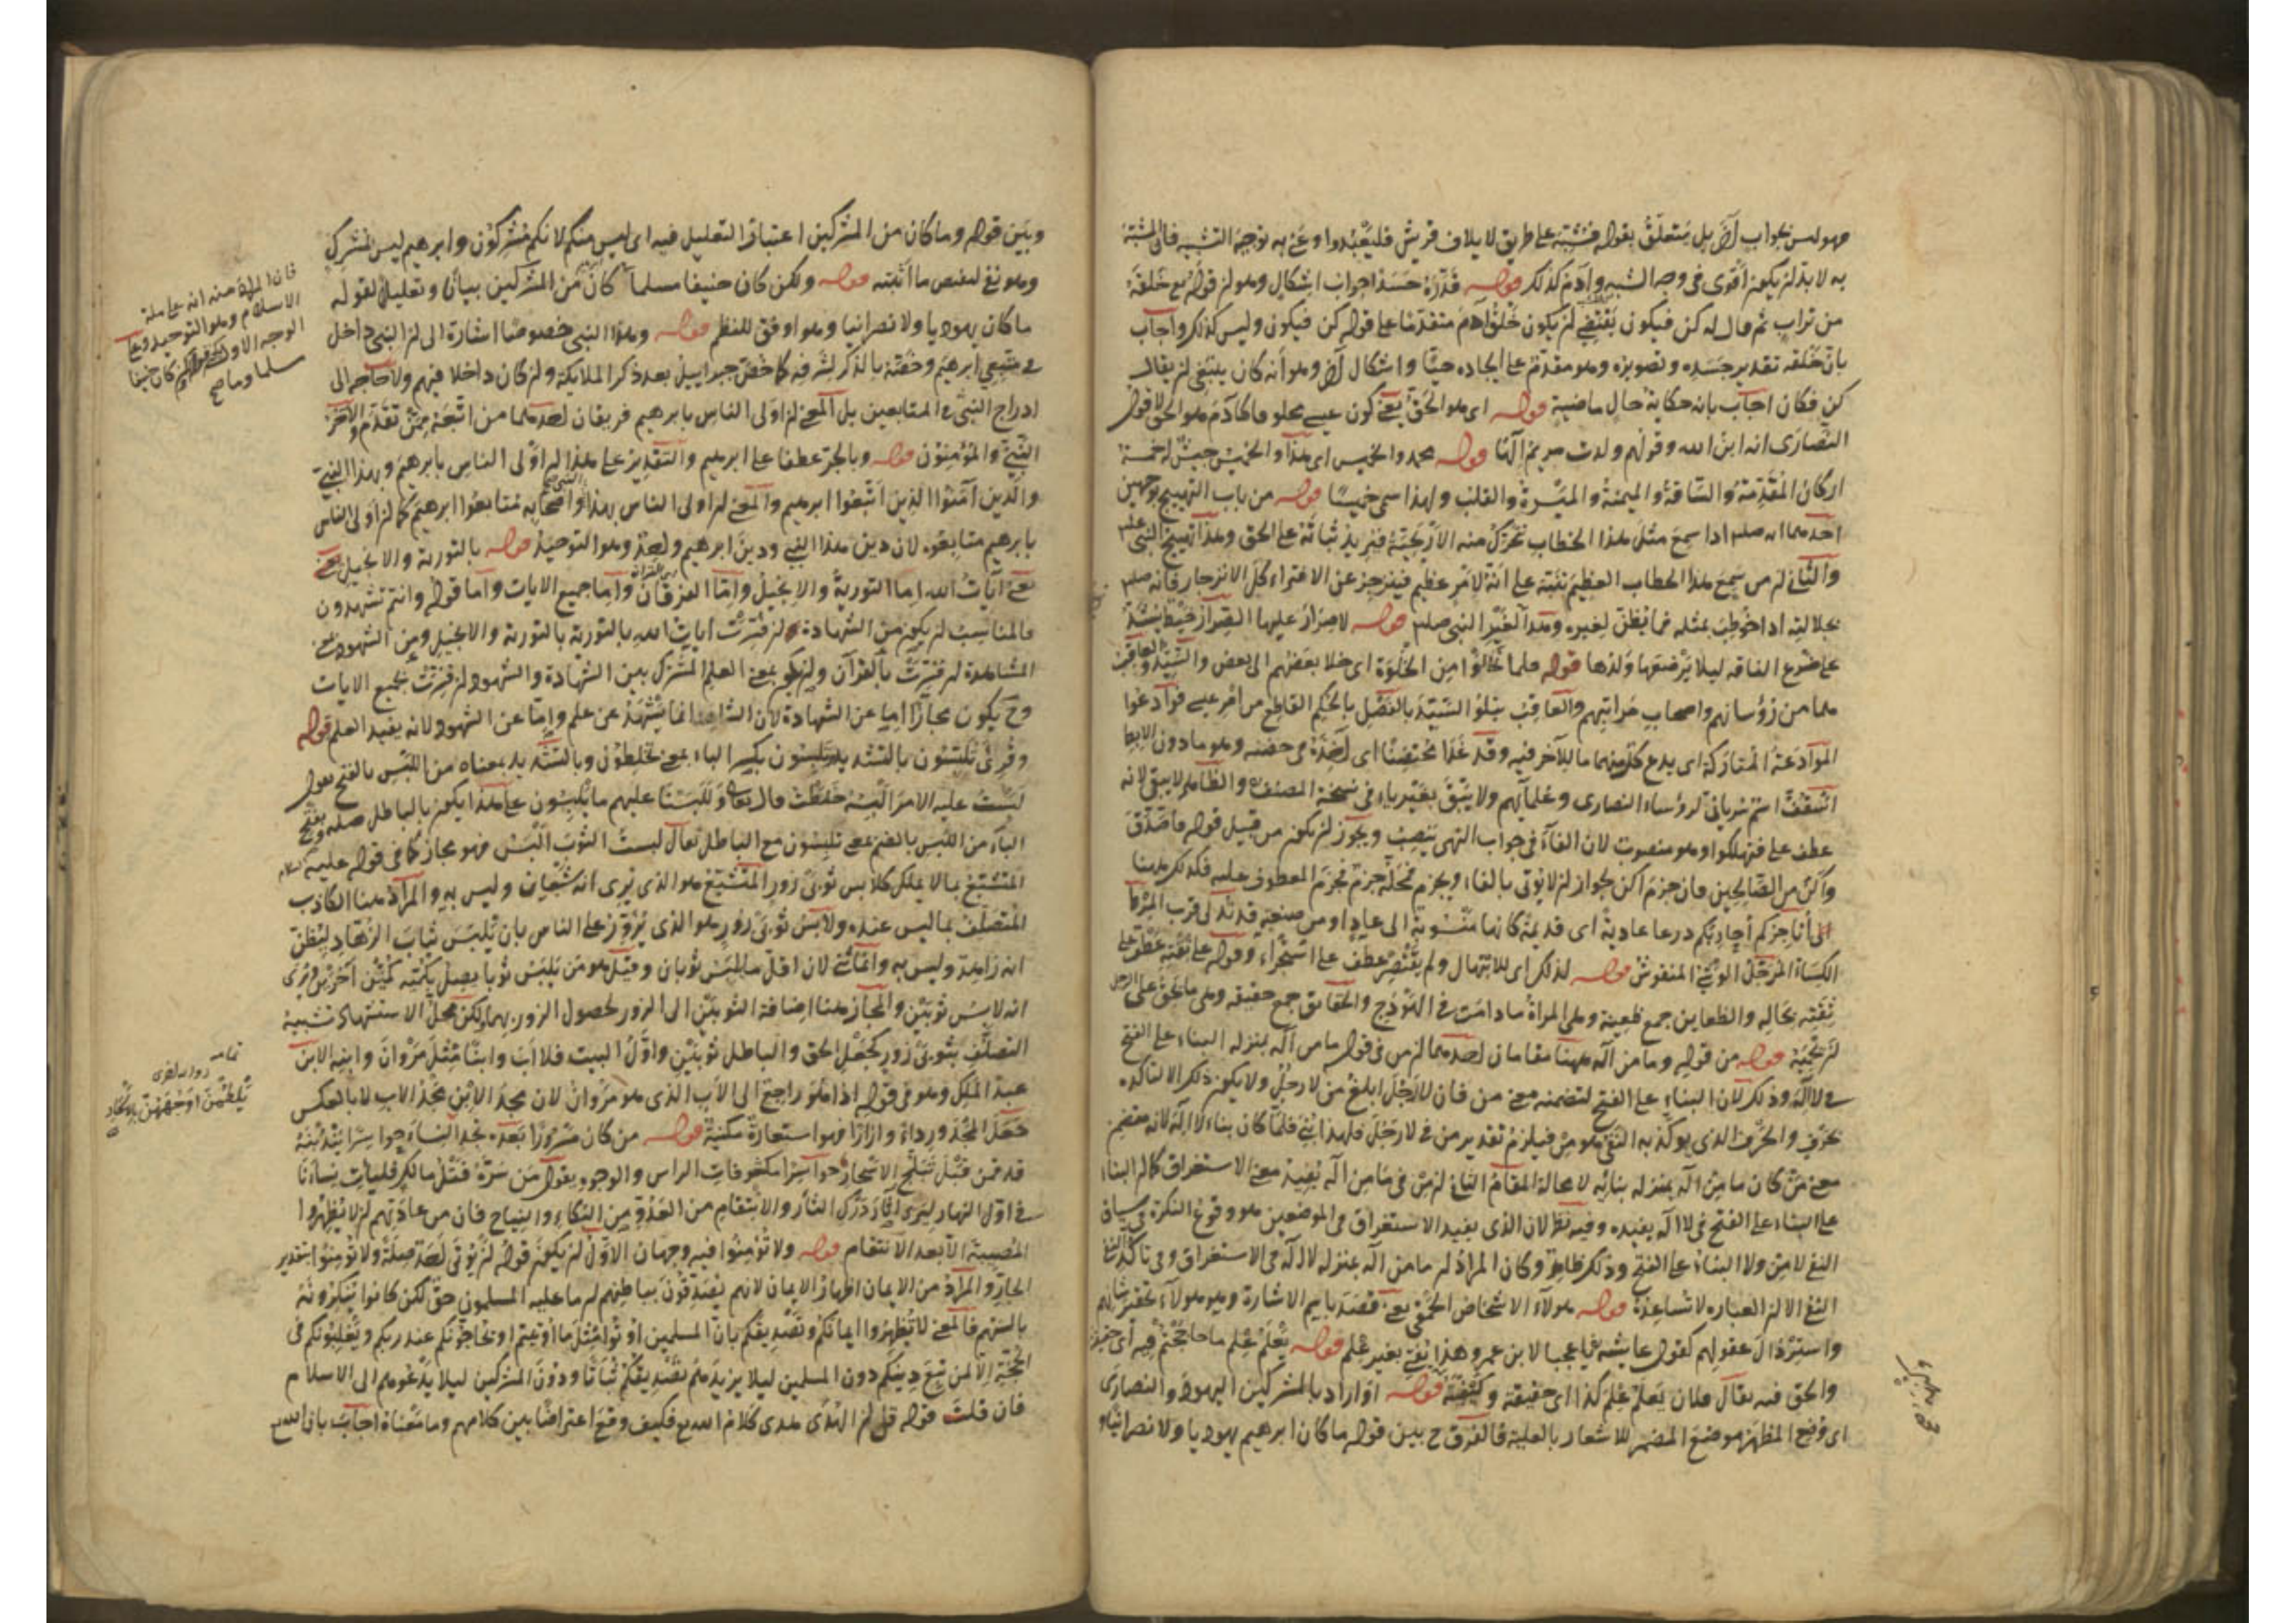 فهو ليس بجواب آخر بل متعلق بقوله فشبه على طريق لايلاف قريش فليعبدوا وعنى به توجيه التشبيه فان المشبه
به لا بد ان يكون اقوى فى وجه الشبه وآدم كذلك قوله قدره جسدا جواب اشكال وهو ان قوله تع خلقه
من تراب ثم قال له كن فيكون يقتضى ان يكون خلق آدم متقدما على قوله كن فيكون وليس كذلك واجاب
بان خلقه تقدير جسده وتصويره وهو مقدم على ايجاده حيا واشكال آخر وهو انه كان ينبغى ان يقال
كن فكان اجاب بانه حكاية حال ماضية قوله اى هو الحق يعنى كون عيسى مخلوقا كآدم هو الحق لا قول
النصارى انه ابن الله وقولهم ولدت مريم الها قوله محمد والخميس اى هذا والخميس جيش له خمسة
اركان المقدمة والساقة والميمنة والميسرة والقلب ولهذا سمى خميسا قوله من باب التهييج لوجهين
احدهما انه صلم اذا سمع مثل هذا الخطاب تحرك منه الاريحية فيزيد ثباته على الحق وهذا تهييج النبى صلم
والثانى ان من سمع هذا الخطاب العظيم تنبه على انه لامر عظيم فينزجر عن الافتراء كل الانزجار فانه صلم
بجلالته اذا خوطب بمثله فما يظن لغيره وهذا لغير النبى صلم قوله لاصرار عليها الصرار خيط يشد
على ضرع الناقة ليلا يرضعها ولدها قوله فلما تخالوا من الخلوة اى خلا بعضهم الى بعض والسيد والعاقب
هما من رؤسائهم واصحاب مراتبهم والعاقب يتلو السيد بالفضل بالحكم القاطع من امر عيسى فوادعوا
الموادعة المتاركة اى يدع كل منهما ما للآخر فيه وقد غدا محتضنا اى آخذه فى حضنه وهو ما دون الابط
اسقف اسم سريانى لرؤساء النصارى وعلمائهم ولا يبق بغير ياء فى نسخة المصنف والظاهر لا يبقى لانه
عطف على فتهلكوا وهو منصوب لان الفاء فى جواب النهى ينصب ويجوز ان يكون من قبيل قوله فاصدق
واكن من الصالحين فان جزم اكن بجواز ان لا يوتى بالفاء ويجزم محله جزم المعطوف عليه فكذلك هنا
الكساء المرحل الموشى المنقوش قوله لذلك اى للابتهال ولم يقتصر عطف على استجراء وقوله على ثقته عطف على
ثقته بحاله والظعاين جمع ظعينة وهى المراة ما دامت فى الهودج والحقايق جمع حقيقة وهى ما يحق على الرجل
ان يحميه قوله من قوله وما من اله ههنا مقامان احدهما ان من فى قوله ما من اله بمنزلة البناء على الفتح
فى لا اله وذلك لان البناء على الفتح لتضمنه معنى من فان لا رجل ابلغ من لا رجل ولا يكون ذلك الا لتاكده
بحرف والحرف الذى يوكد به النفى هو من فيلزم تقدير من فى لا رجل فلهذا بنى فلما كان بناء لا اله لانه متضمن
معنى من كان ما من اله بمنزلة بنائه لا محالة المقام الثانى ان من فى ما من اله يفيد معنى الاستغراق كما ان البناء
على البناء على الفتح فى لا اله يفيده وفيه نظر لان الذى يفيد الاستغراق فى الموضعين هو وقوع النكرة فى سياق
النفى لا من ولا البناء على الفتح وذلك ظاهر وكان المراد ان ما من اله بمنزلة لا اله فى الاستغراق وفى تاكد النفى
النفى الا ان العبارة لا تساعده قوله هولاء الاشخاص الحمقى يعنى قصد باسم الاشارة وهو هولاء تحقير شانهم
واسترذال عقولهم كقول عايشه يا عجبا لابن عمرو هذا يفتى بغير علم قوله يعلم علم ما حاججتم فيه اى حقيقة
والحق فيه يقال فلان يعلم علم كذا اى حقيقته وكيفيته قوله او اراد بالمشركين اليهود والنصارى
اى وضع المظهر موضع المضمر للاشعار بالعلية فالفرق ح بين قوله ما كان ابرهيم يهوديا ولا نصرانيا و
وبين قوله وما كان من المشركين اعتبار التعليل فيه اى ليس منكم لانكم مشركون وابرهيم ليس بمشرك
وهو نفى لبعض ما اثبته قوله ولكن كان حنيفا مسلما كان من المشركين بيان وتعليل لقوله
ما كان يهوديا ولا نصرانيا وهو اوفق للنظم قوله وهذا النبى خصوصا اشارة الى ان النبى داخل
فى متبعى ابرهيم وخصه بالذكر لشرفه كما خص جبرائيل بعد ذكر الملايكة وان كان داخلا فيهم ولا حاجة الى
ادراج النبى فى المتابعين بل المعنى ان اولى الناس بابرهيم فريقان احدهما من اتبعه ممن تقدم والآخر
النبى والمؤمنون قوله وبالجر عطفا على ابرهيم والتقدير على هذا ان اولى الناس بابرهيم وبهذا النبى
والذين آمنوا الذين اتبعوا ابرهيم والمعنى ان اولى الناس بهذا النبى واصحابه متابعوا ابرهيم كما ان اولى الناس
بابرهيم متابعوه لان دين هذا النبى ودين ابرهيم واحد وهو التوحيد قوله بالتورية والانجيل يعنى
يعنى آيات الله اما التورية والانجيل واما الفرقان واما جميع الايات واما قوله وانتم تشهدون
فالمناسب ان يكون من الشهادة ان فسرت ايات الله بالتورية بالتورية والانجيل ومن الشهود بمعنى
المشاهدة ان فسرت بالقرآن وان يكون بمعنى العلم المشترك بين الشهادة والشهود ان فسرت بجميع الايات
وح يكون مجازا اما عن الشهادة لان الشاهد انما يشهد عن علم واما عن الشهود لانه يفيد العلم قوله
وقرئ تلبسون بالتشديد وتلبسون بكسر الباء بمعنى تخلطون وبالتشديد بمعناه من اللبس بالفتح يقول
لبست عليه الامر البسه خلطت قال تعالى وللبسنا عليهم ما يلبسون على هذا يكون بالباطل صلة وبفتح
الباء من اللبس بالضم بمعنى تلبسون مع الباطل يقال لبست الثوب البس فهو مجاز كما فى قوله عليه السلام
المتشبع بما لا يملك كلابس ثوبى زور المتشبع هو الذى يرى انه شبعان وليس به والمراد هنا الكاذب
المتصلف بما ليس عنده ولابس ثوبى زور هو الذى يزور على الناس بان يلبس ثياب الزهاد ليظن
انه زاهد وليس به وانما ثنى لان اقل ما يلبس ثوبان وقيل هو من يلبس ثوبا يصل بكميه كمين آخرين يرى
انه لابس ثوبين والمجاز هنا اضافة الثوبين الى الزور لحصول الزور بهما ولكن محل الاستشهاد تشبيه
التصلف بثوبى زور كجعل الحق والباطل ثوبين واول البيت فلا اب وابنا مثل مروان وابنه الابن
عبد الملك وهو فى قوله اذا هو راجع الى الاب الذى هو مروان لان مجد الابن مجد الاب لا بالعكس
جعل المجد رداء وازارا فهو استعارة مكنية قوله من كان مسرورا بعده نجد النساء حواسرا يندبنه
قد قمن قبل تبلج الاسحار حواسرا مكشوفات الراس والوجوه يقول من سره قتل مالك فليات نساءنا
فى اول النهار ليرى آثار درك الثار والانتقام من العدو من البكاء والنياح فان من عادتهم ان لا يظهروا
المصيبة الا بعد الانتقام قوله ولا تؤمنوا فيه وجهان الاول ان يكون قوله ان يؤتى احد صلة ولا تؤمنوا بتقدير
الجار والمراد من الايمان اظهار الايمان لانهم يصدقون بباطنهم ان ما عليه المسلمون حق لكن كانوا ينكرونه
بالسنتهم فالمعنى لا تظهروا ايمانكم وتصديقكم بان المسلمين اوتوا مثل ما اوتيتم او يحاجوكم عند ربكم ويغلبونكم فى
الحجة الا لمن تبع دينكم دون المسلمين ليلا يزيدهم تصديقكم ثباتا ودون المشركين ليلا يدعوهم الى الاسلام
فان قلت قوله قل ان الهدى هدى الله كلام الله تع فكيف وقع اعتراضا بين كلامهم وما معناه اجاب بان الله تع
فان المراد منه انه على ملة
الاسلام وهو التوحيد وعلى
الوجه الاول كان حنيفا
مسلما وما صح
يلطمن اوجههن بالاسحار